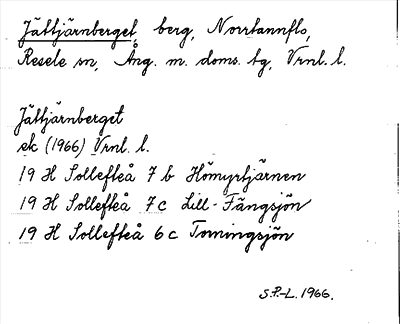 Jättjärnberget, berg, Norrtannflo,
Resele sn, Ång. m. doms. tg, Vrnl. l.
Jättjärnberget
ek (1966) Vrnl. l.
19 H Sollefteå 7 b Hömyrtjärnen
19 H Sollefteå 7 c Lill-Fängsjön
19 H Sollefteå 6 c Tomingsjön
S.P.-L. 1966.